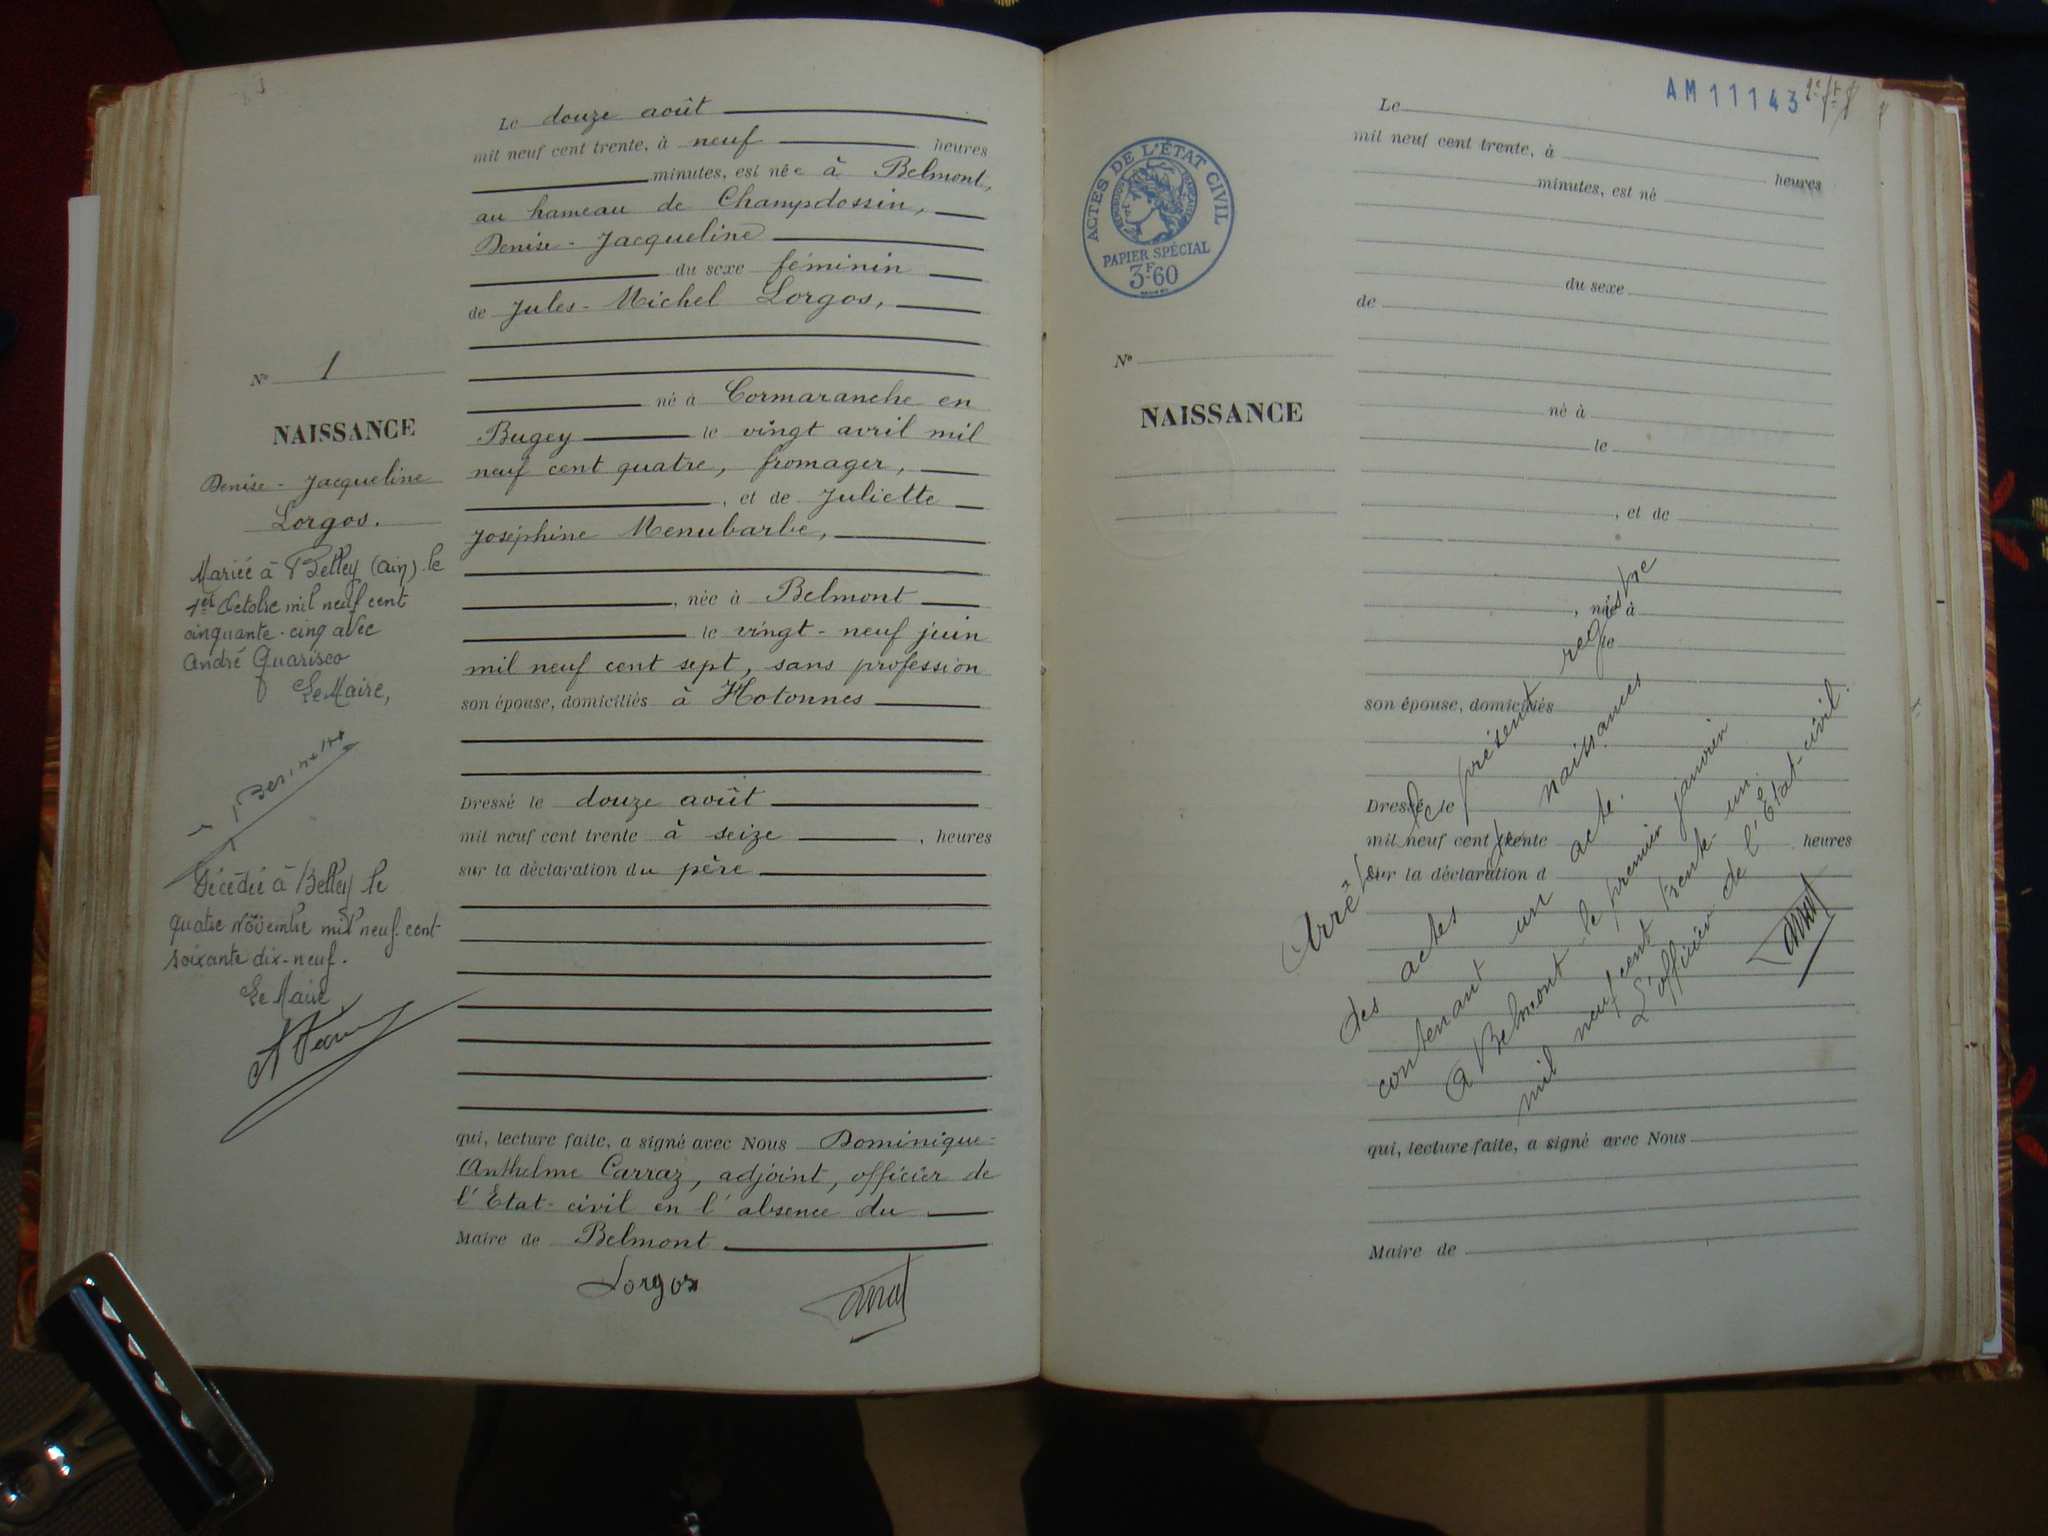 Le douze août
mil neuf cent trente, à neuf heures
minutes, est née à Belmont,
au hameau de Champdossin,
Denise - Jacqueline
du sexe féminin
de Jules - Michel Lorgos,
né à Cormaranche en
Bugey le vingt avril mil
neuf cent quatre, fromager,
, et de Juliette
Joséphine Menubarbe,
, née à Belmont
le vingt - neuf juin
mil neuf cent sept, sans profession
son épouse, domiciliés à Hotonnes
Dressé le douze août
mil neuf cent trente à seize , heures
sur la déclaration du père
qui, lecture faite, a signé avec Nous Dominique-
Anthelme Carraz, adjoint, officier de
l'Etat-civil en l'absence du
Maire de Belmont
Lorgos
N° 1
NAISSANCE
Denise - Jacqueline
Lorgos.
Mariée à Belley (Ain) le
1er Octobre mil neuf cent
cinquante-cinq avec
André Quarisco
Le Maire,
Décédée à Belley le
quatre Novembre mil neuf cent
soixante dix-neuf.
Le Maire
AM11143
ACTES DE L'ÉTAT CIVIL
PAPIER SPÉCIAL
3F60
N°
NAISSANCE
Le
mil neuf cent trente, à heures
minutes, est né
du sexe
de
né à
le
, et de
, née à
le
son épouse, domiciliés
Dressé le
mil neuf cent trente heures
sur la déclaration d
qui, lecture faite, a signé avec Nous
Maire de
Arrêté le présent registre
des actes de naissances
contenant un acte.
A Belmont le premier janvier
mil neuf cent trente-un.
L'officier de l'État-civil.